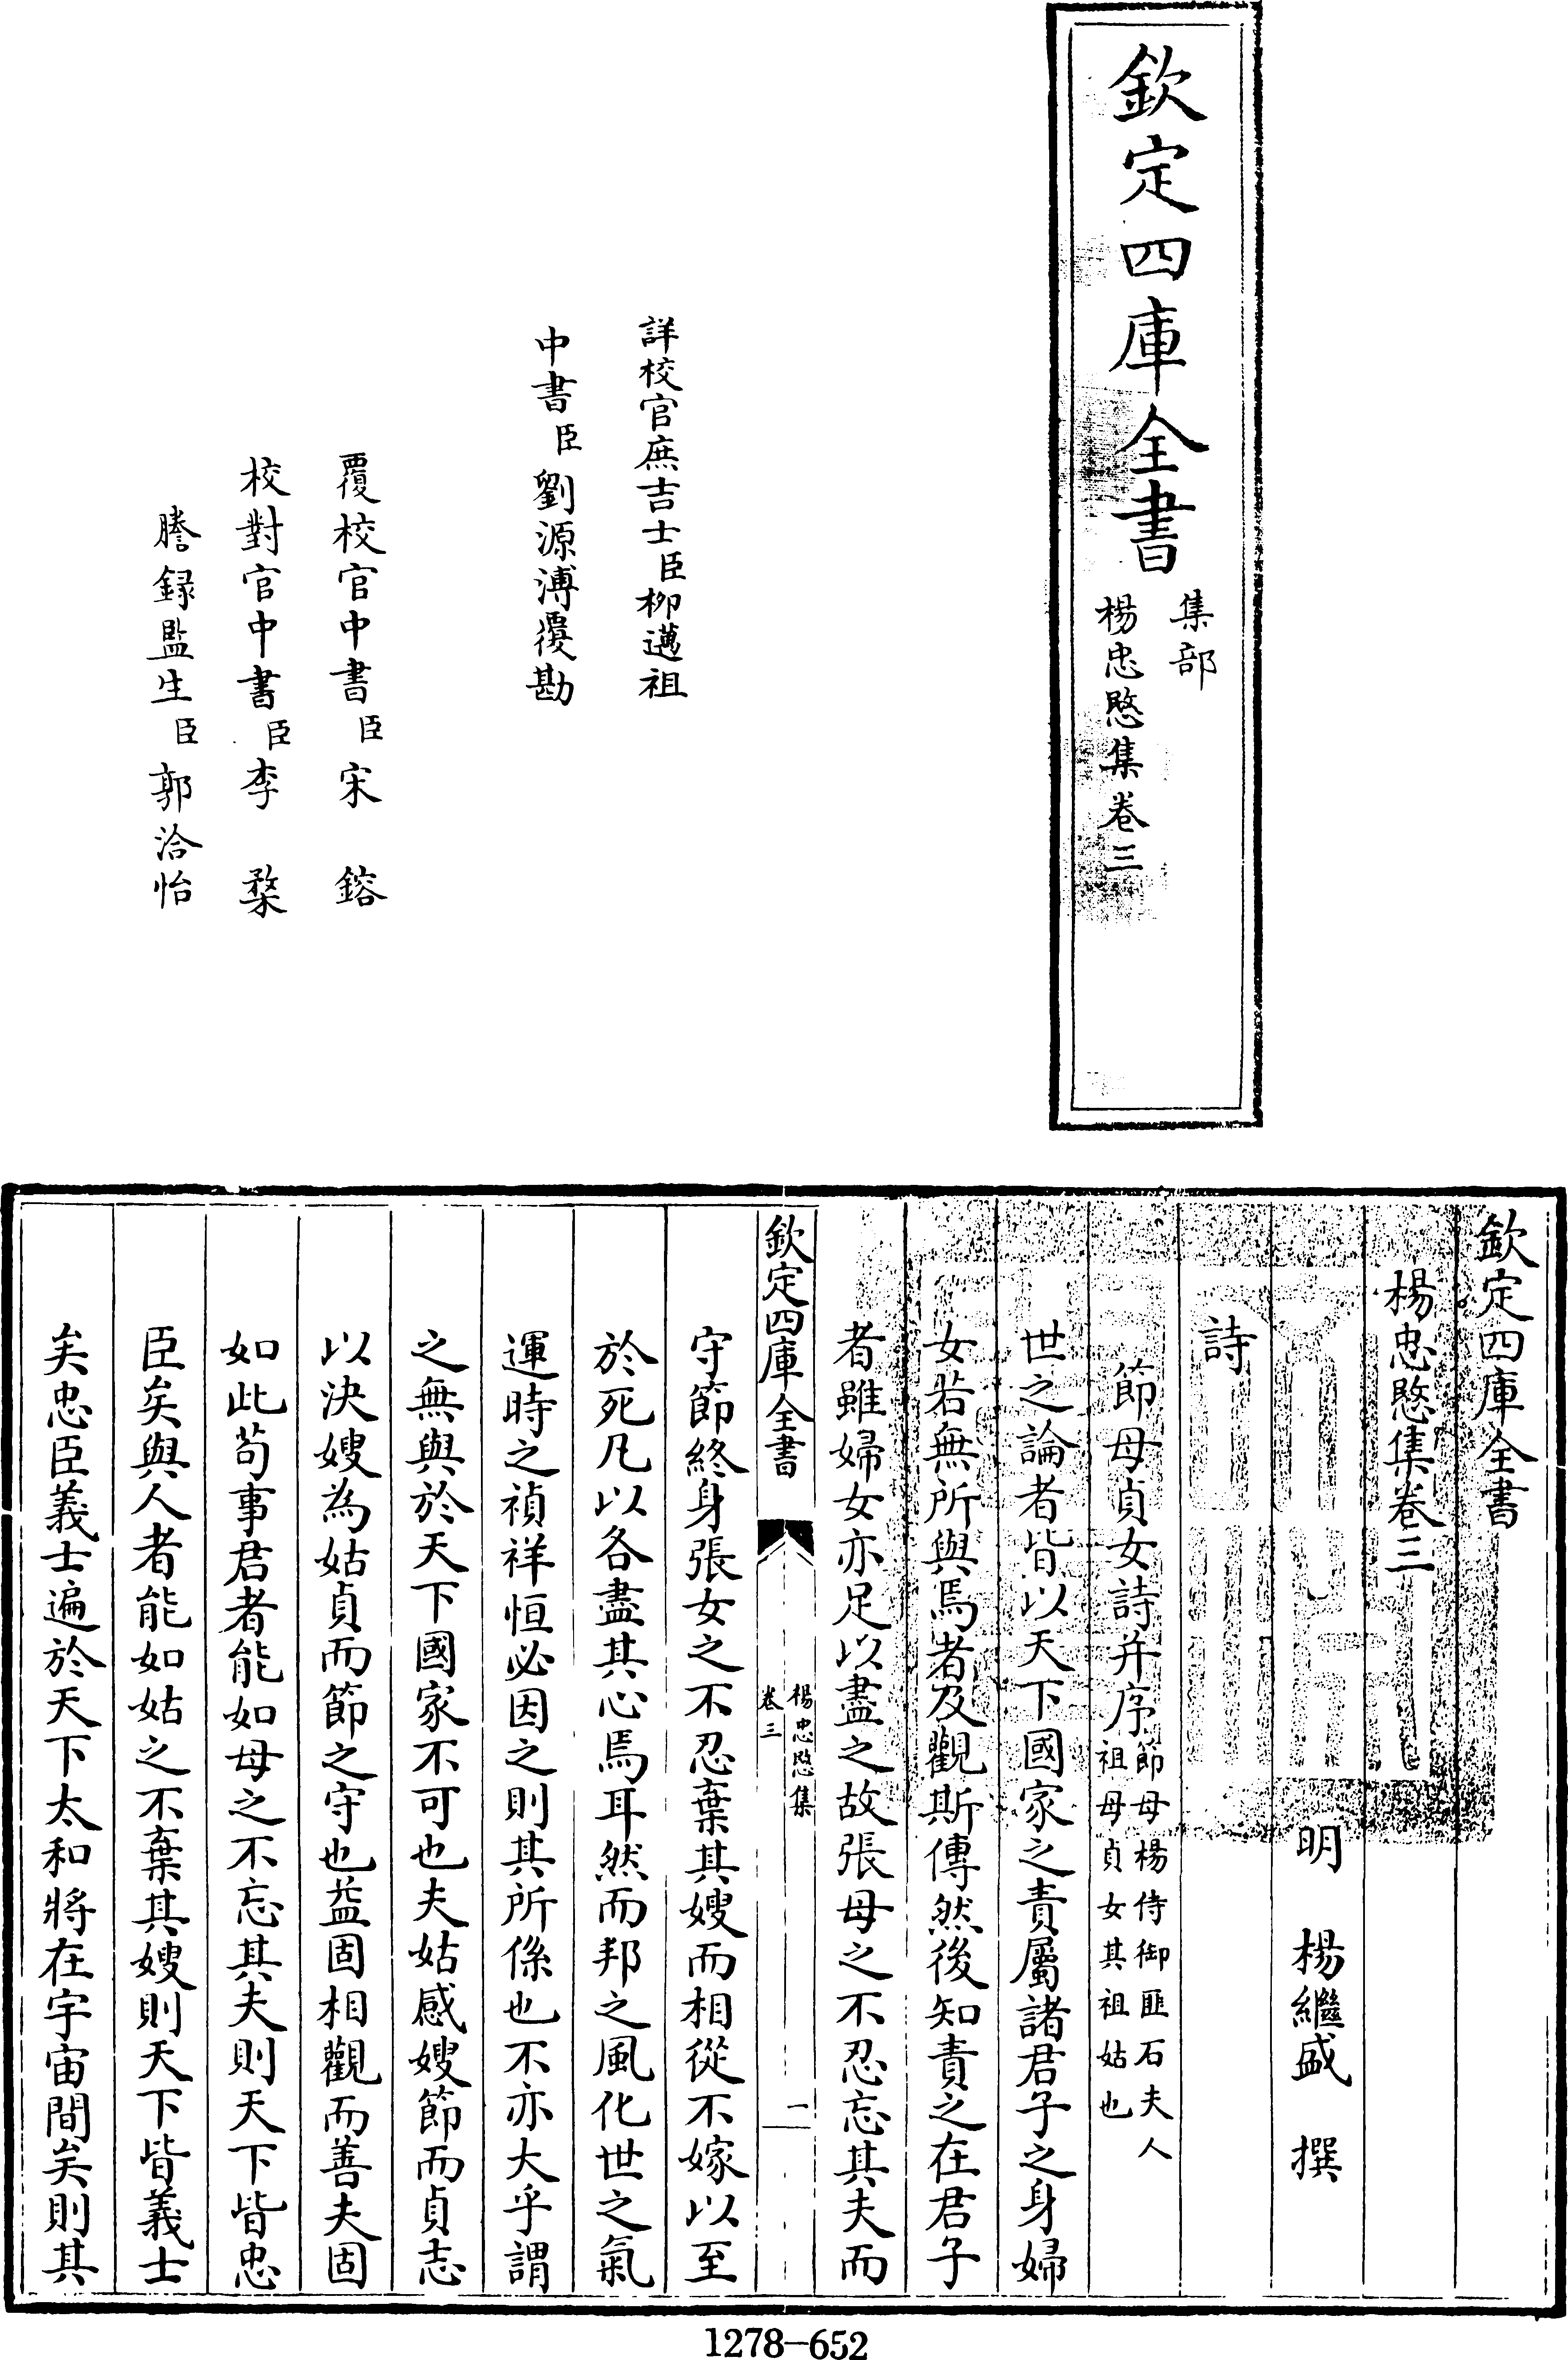 欽定四庫全書
集部
楊忠愍集卷三
詳校官庶吉士臣柳邁祖
中書臣劉源溥覆勘
覆校官中書臣宋鎔
校對官中書臣李楘
謄録監生臣郭洽怡
欽定四庫全書
楊忠愍集卷三
明 楊繼盛 撰
詩
節母貞女詩并序節母楊侍御匪石夫人
祖母貞女其祖姑也
世之論者皆以天下國家之責屬諸君子之身婦
女若無所與焉者及觀斯傳然後知責之在君子
者雖婦女亦足以盡之故張母之不忍忘其夫而
欽定四庫全書
楊忠愍集
卷三
一
守節終身張女之不忍棄其嫂而相從不嫁以至
於死凡以各盡其心焉耳然而邦之風化世之氣
運時之禎祥恒必因之則其所係也不亦大乎謂
之無與於天下國家不可也夫姑感嫂節而貞志
以決嫂為姑貞而節之守也益固相觀而善夫固
如此茍事君者能如母之不忘其夫則天下皆忠
臣矣與人者能如姑之不棄其嫂則天下皆義士
矣忠臣義士遍於天下太和將在宇宙間矣則其
1278-652